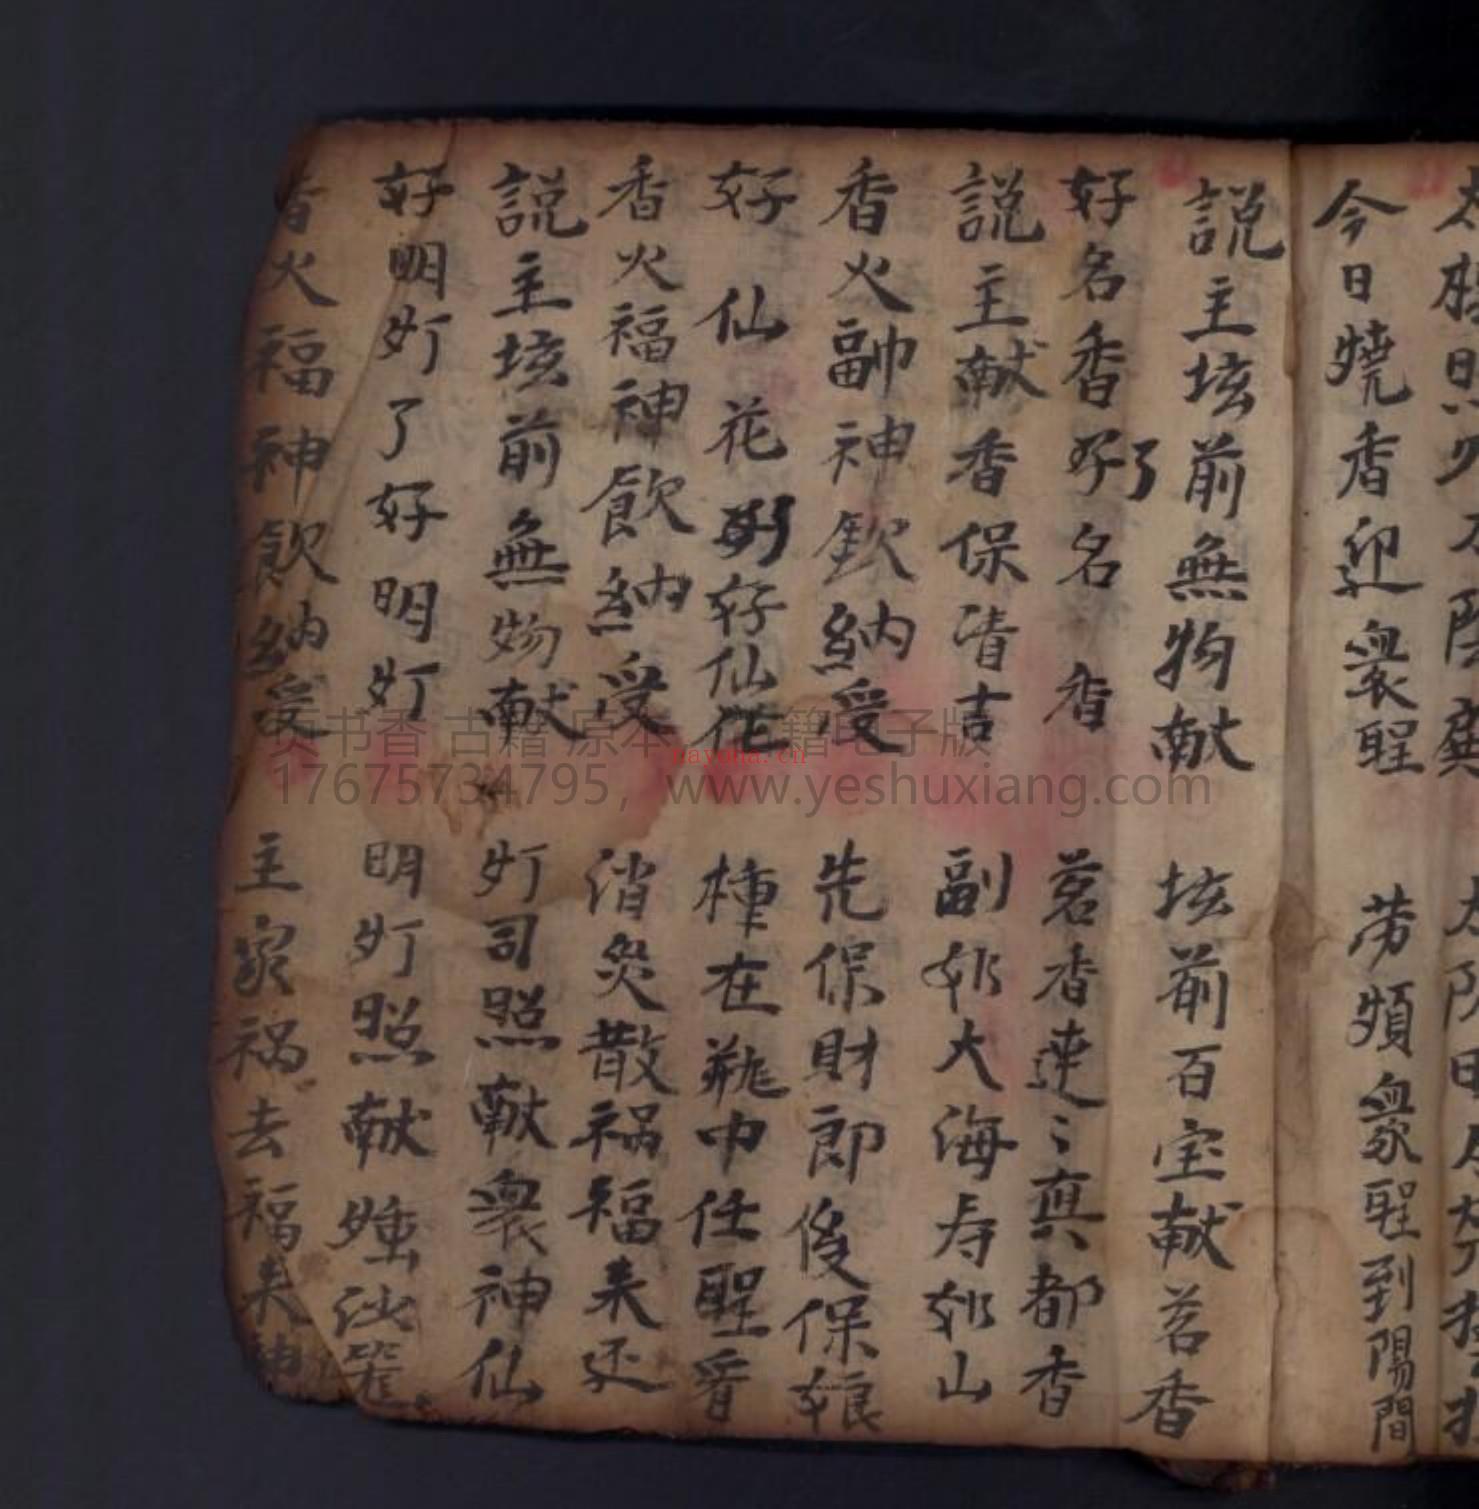 今日燒香迎衆聖 劳煩衆聖到陽間
説主坛前無物献 坛前百宝献茗香
好名香好了名香 茗香連〻興都香
説主献香保清吉 副如大海寿如山
香火副神欽納受 先保財郎後保娘
好仙花 好仙花 種在瓶中任聖看
香火福神飲納受 消灾散祸福来还
説主坛前無物献 灯司照献衆神仙
好明灯了好明灯 明灯照献
香火福神飲納受 主家祸去福来
卖书香 古籍 原本 籍电子版
17675734795，www.yeshuxiang.com
nayona.cn